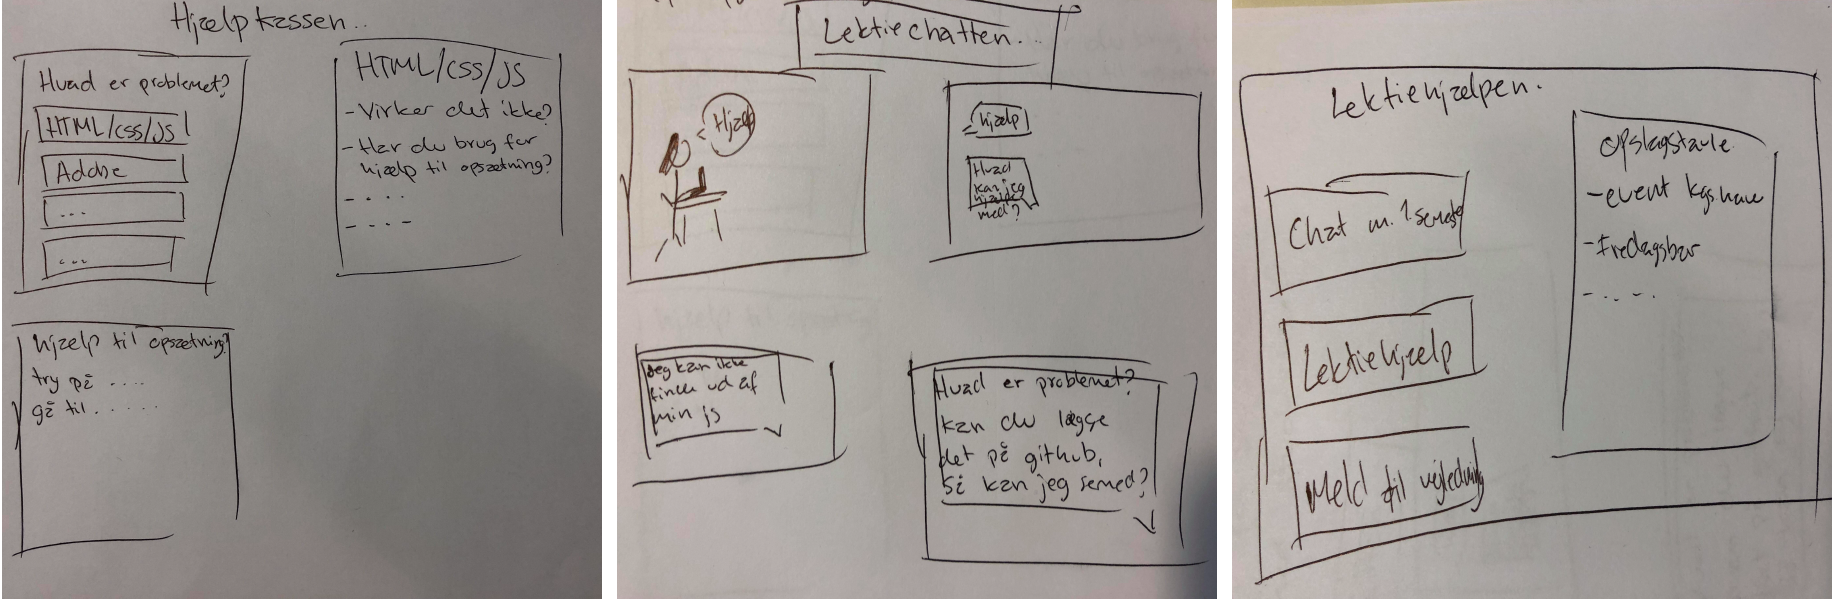 Hjælpkassen..
Hvad er problemet?
HTML/css/JS
Adobe
...
...
HTML/css/JS
- Virker det ikke?
- Har du brug for
hjælp til opsætning?
- . . .
- . . -
hjælp til opsætning?
try på ....
gå til ......
Lektiechatten..
Hjælp
hjælp
Hvad
kan jeg
hjælpe
med?
Jeg kan ikke
finde ud af
min js
Hvad er problemet?
kan du lægge
det på github,
så kan jeg se med?
Lektiehjælpen.
Chat m. 1. semester
Lektiehjælp
Meld til vejledning
opslagstavle
- event kgs have
- Fredagsbar
- . . - .